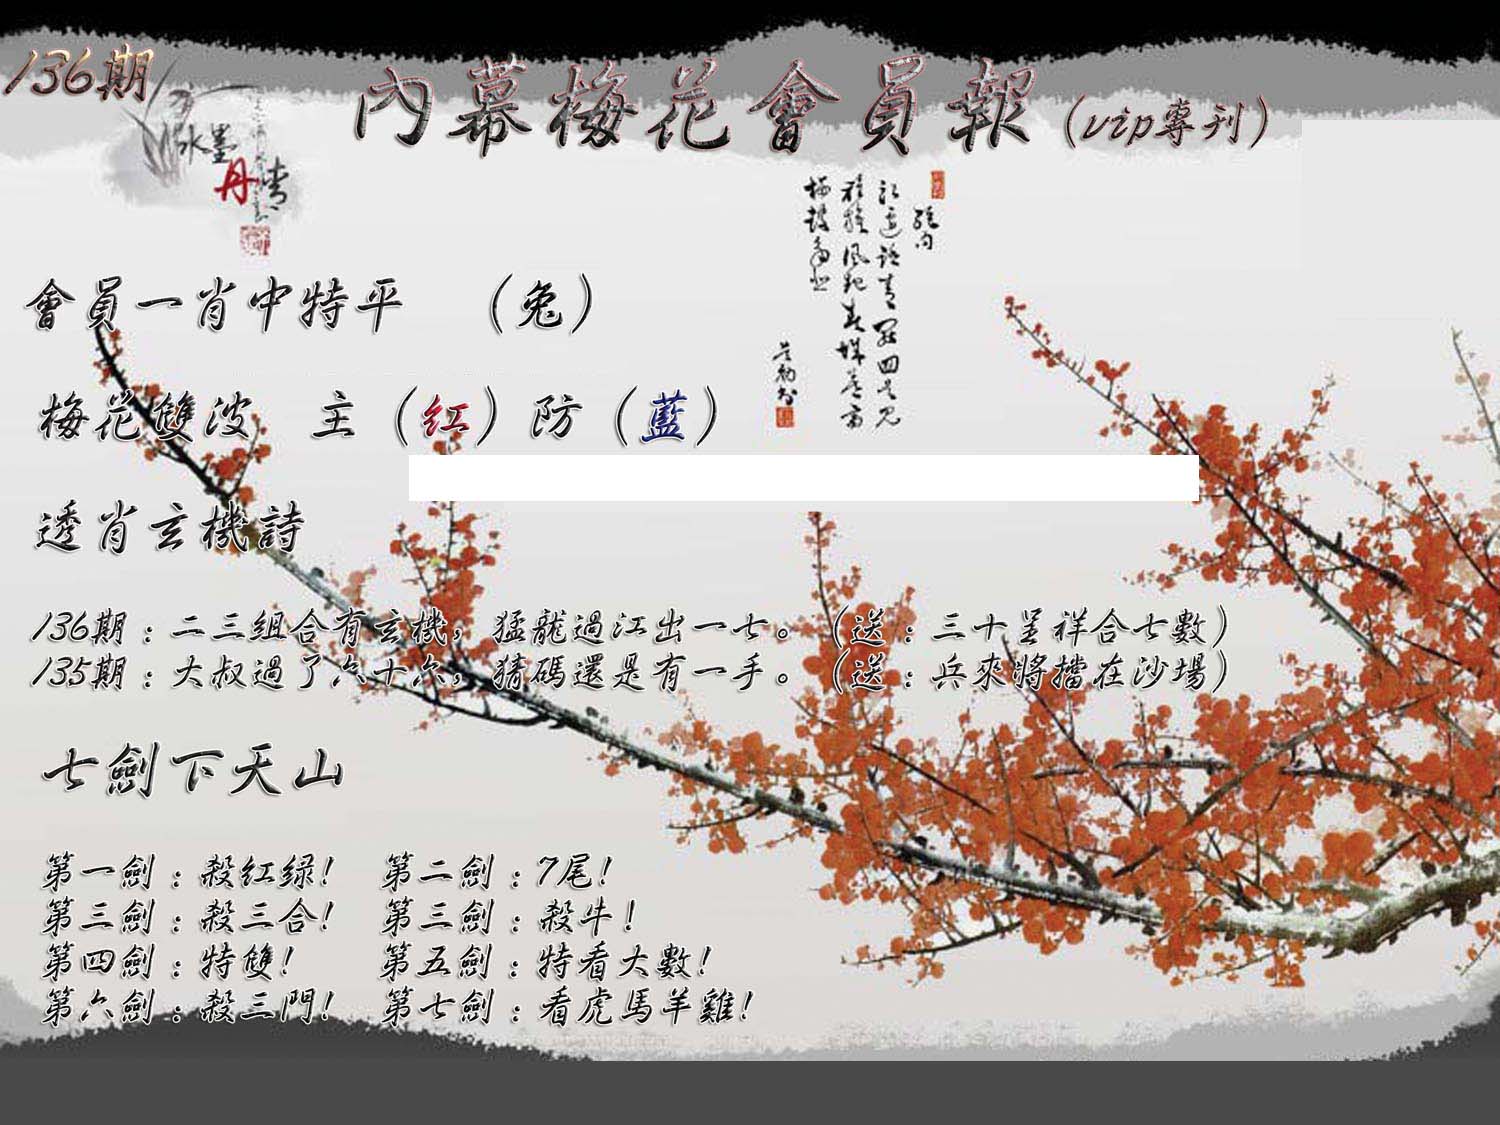 136期
內幕梅花會員報（vip專刊）
水墨
丹青
會員一肖中特平 （兔）
梅花雙波 主（紅）防（藍）
透肖玄機詩
136期：二三組合有玄機，猛龍過江出一七。（送：三十呈祥合七數）
135期：大叔過了六十六，猜碼還是有一手。（送：兵來將擋在沙場）
七劍下天山
第一劍：殺紅绿! 第二劍：7尾!
第三劍：殺三合! 第三劍：殺牛!
第四劍：特雙! 第五劍：特看大數!
第六劍：殺三門! 第七劍：看虎馬羊雞!